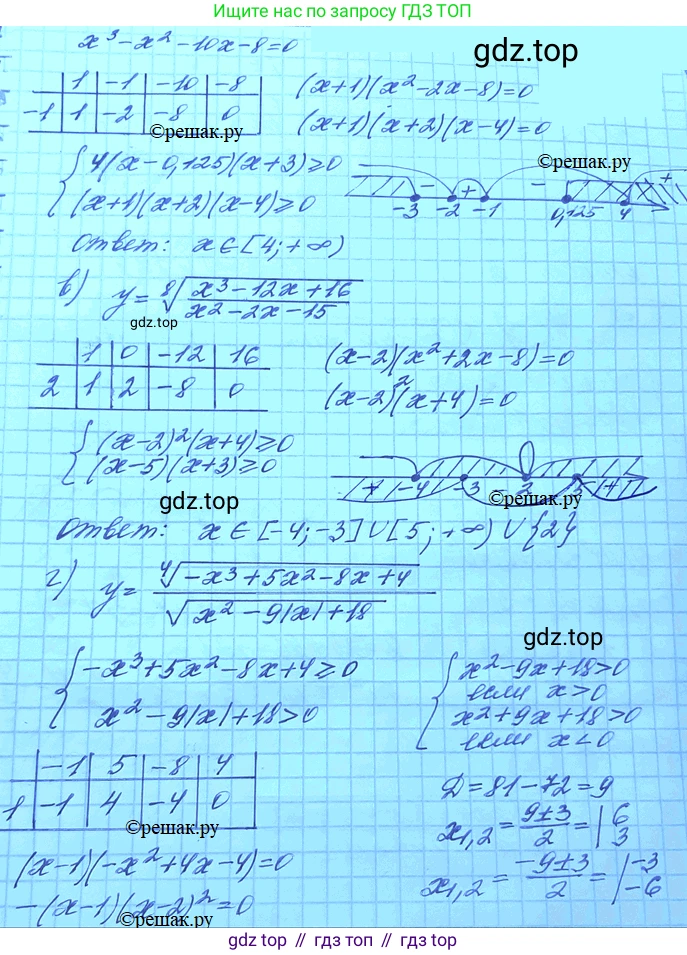 Ищите нас по запросу ГДЗ ТОП
x³ - x² - 10x - 8 = 0
gdz.top
1 -1 -10 -8
-1 1 -2 -8 0
(x+1)(x²-2x-8)=0
(x+1)(x+2)(x-4)=0
©решак.ру
©решак.ру
{ 4(x-0,125)(x+3)≥0
(x+1)(x+2)(x-4)≥0
- + - +
-3 -2 -1 0,125 4
Ответ: x∈[4;+∞)
в) y = ⁸√((x³-12x+16)/(x²-2x-15))
gdz.top
1 0 -12 16
2 1 2 -8 0
(x-2)(x²+2x-8)=0
(x-2)²(x+4)=0
{ (x-2)²(x+4)≥0
(x-5)(x+3)≥0
+ -4 -3 2 5 +
gdz.top
©решак.ру
Ответ: x∈[-4;-3]∪[5;+∞)∪{2}
г) y = ⁴√(-x³+5x²-8x+4) / √(x²-9|x|+18)
gdz.top
{ -x³+5x²-8x+4≥0
x²-9|x|+18>0
{ x²-9x+18>0
если x>0
x²+9x+18>0
если x<0
-1 5 -8 4
1 -1 4 -4 0
©решак.ру
Д=81-72=9
x1,2 = (9±3)/2 = | 6 3
x1,2 = (-9±3)/2 = | -3 -6
(x-1)(-x²+4x-4)=0
-(x-1)(x-2)²=0
©решак.ру
gdz.top // гдз топ // gdz.top